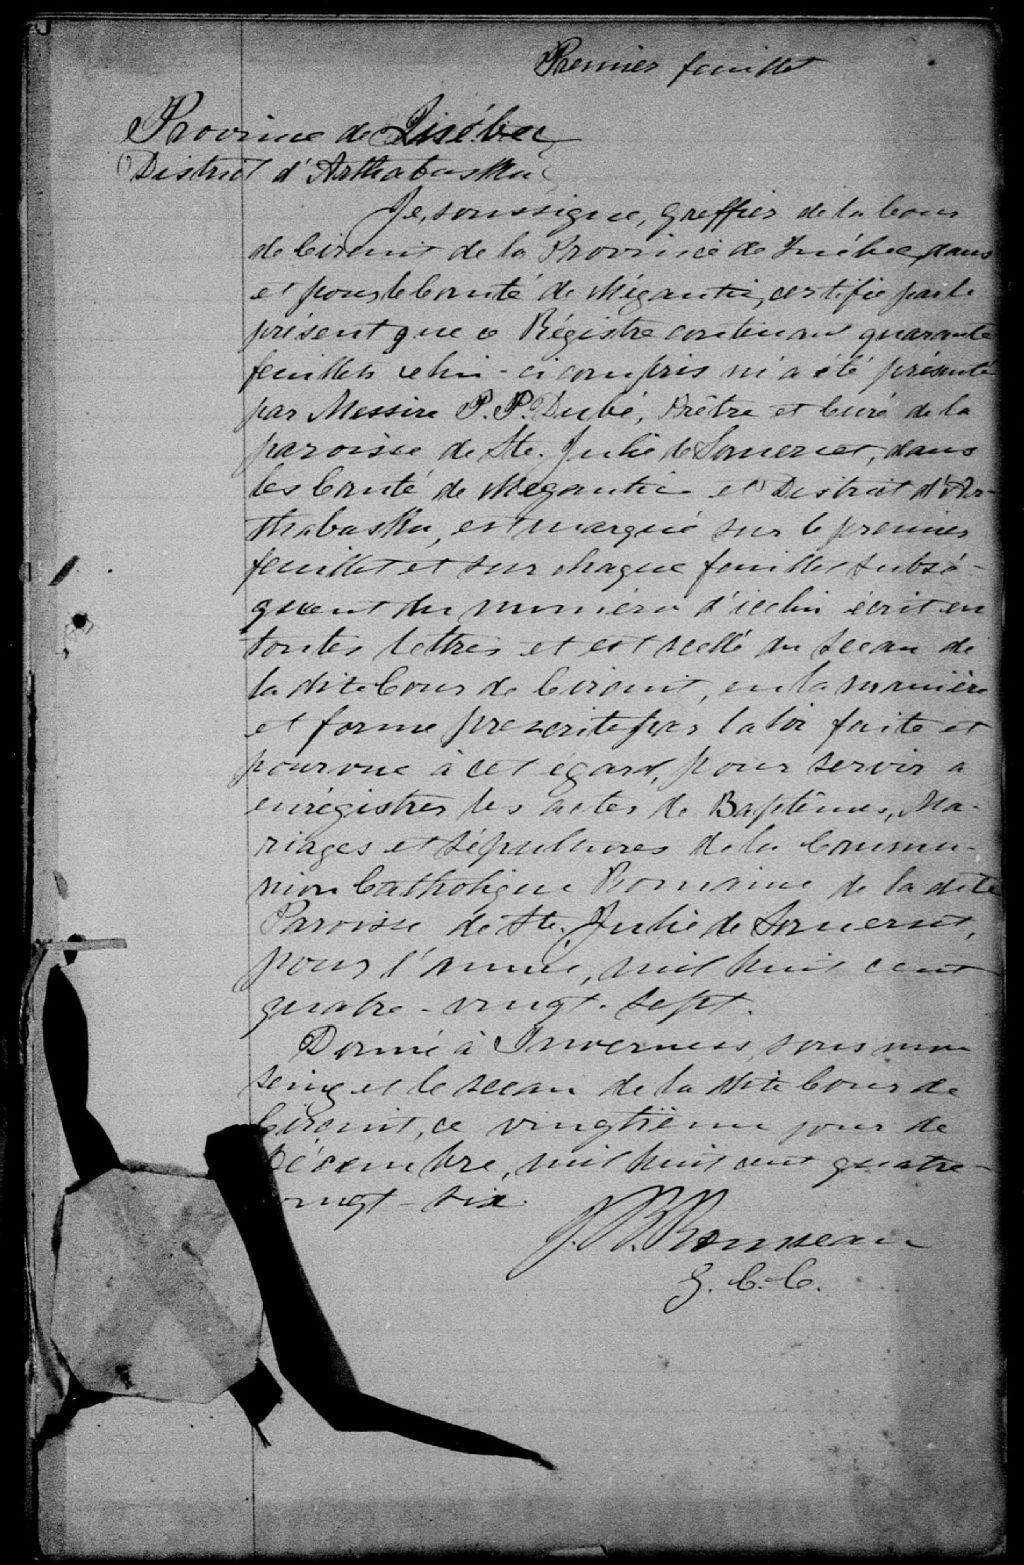 Premier feuillet
Province de Québec
District d'Arthabaska
Je, soussigné, greffier de la Cour
de Circuit de la Province de Québec, dans
et pour le Comté de Mégantic, certifie par le
présent que ce Régistre contenant quarante
feuillets celui-ci compris m'a été présenté
par Messire P. P. Dubé, Prêtre et Curé de la
paroisse de Ste. Julie de Somerset, dans
les Comté de Mégantic et District d'Ar-
thabaska, est marqué sur le premier
feuillet et sur chaque feuillet subsé-
quent du numéro d'icelui écrit en
toutes lettres et est scellé du sceau de
la dite Cour de Circuit, en la manière
et forme prescrite par la loi faite et
pourvue à cet égard, pour servir à
enrégistrer les actes de Baptêmes, Ma-
riages et Sépultures de la Commu-
nion Catholique Romaine de la dite
Paroisse de Ste. Julie de Somerset,
pour l'année, mil huit cent
quatre-vingt-sept.
Donné à Inverness, sous mon
seing et le sceau de la dite Cour de
Circuit, ce vingtième jour de
Décembre, mil huit cent quatre-
vingt-six.
J. B. Rousseau
G. C. C.